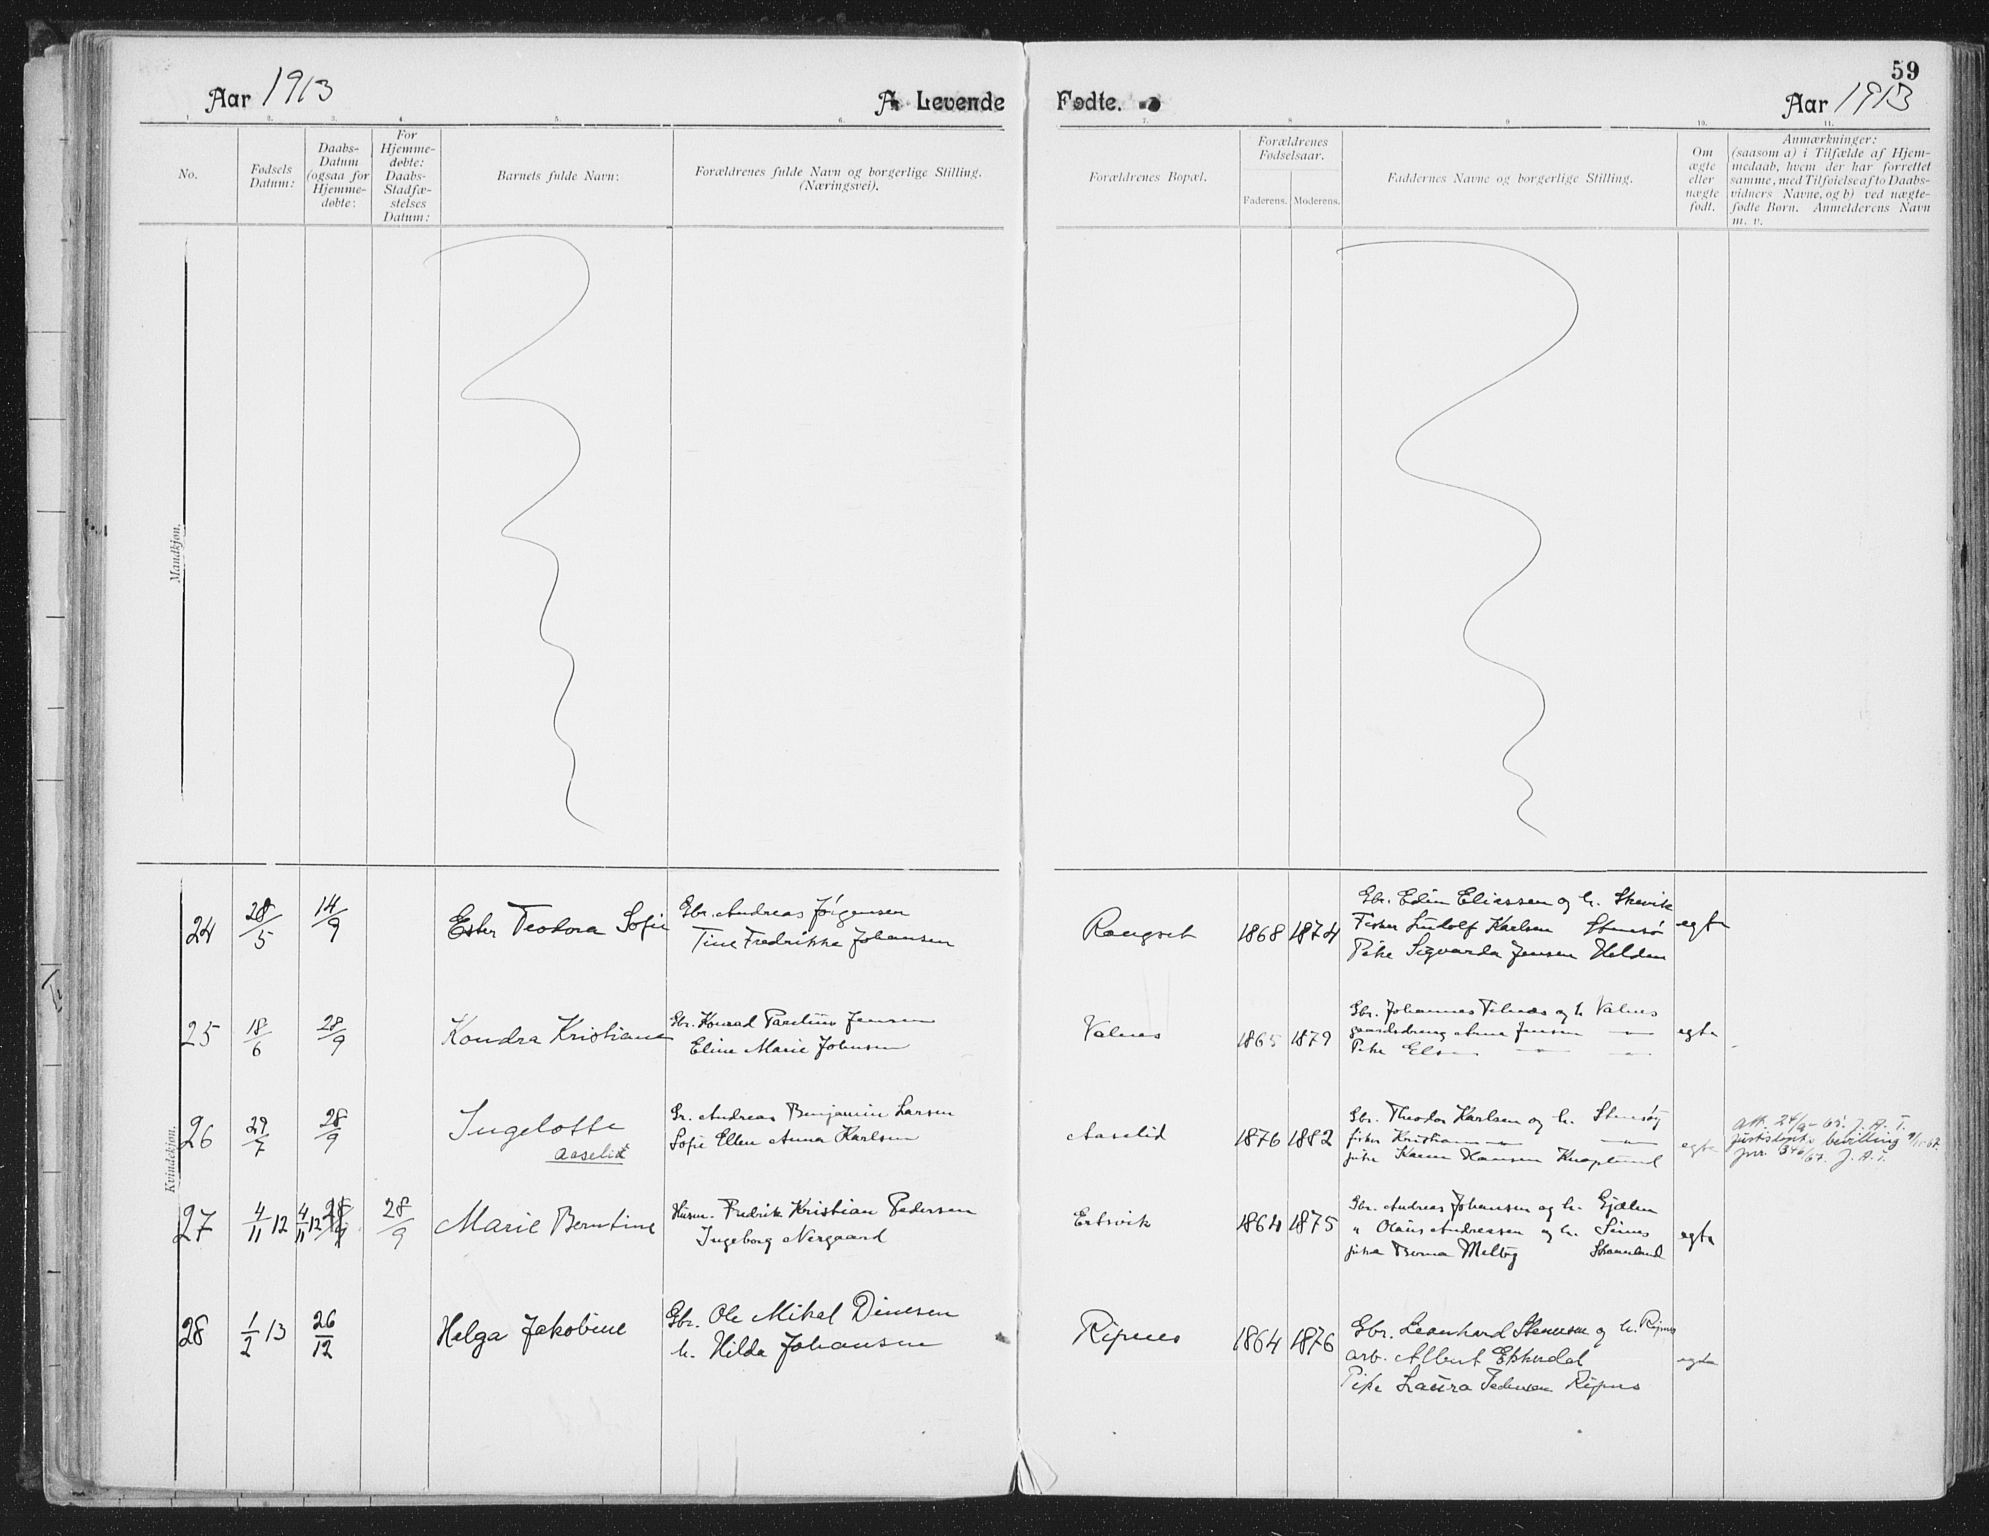 59
Aar 1913
A. Levende Fødte.
Aar 1913
1. 2. 3. 4. 5. 6. 7. 8. 9. 10. 11.
No.
Fødsels
Datum:
Daabs-
Datum
(ogsaa for
Hjemme-
døbte:
For
Hjemme-
døbte:
Daabs-
Stadfæ-
stelses
Datum:
Barnets fulde Navn:
Forældrenes fulde Navn og borgerlige Stilling.
(Næringsvei).
Forældrenes Bopæl.
Forældrenes
Fødselsaar.
Faderens. Moderens.
Faddernes Navne og borgerlige Stilling.
Om
ægte
eller
uægte
født.
Anmærkninger:
(saasom a) i Tilfælde af Hjem-
medaab, hvem der har forrettet
samme, med Tilføielse af to Daabs-
vidners Navne, og b) ved uægte-
fødte Børn. Anmelderens Navn
m. v.
Mandkjøn.
Kvindekjøn.
24 28/5 14/9 Ester Teodora Sofie
Gbr. Andreas Jörgensen
Tine Fredrikke Johansen
Rangset 1868 1874
Gbr. Edin Eliassen og h. Skevik
Fisker Ludolf Karlsen Stensø
Pike Sigvarda Jensen Helden
egte
25 18/6 28/9 Kondra Kristiane
Gbr. Konrad Jensen
Eline Marie Johnsen
Valnes 1865 1879
Gbr. Johannes og h. Valnes
gaardsdreng Arne Jensen — " —
Pike — " — — " —
egte
26 29/7 28/9 Ingelotte
Aaselid
Gr. Andreas Benjamin Larsen
Sofie Ellen Anna Karlsen
Aaselid 1876 1882
Gbr. Theodor Karlsen og h. Stensøy
fisker Kristian — " — — " —
pike Karen Hansen Knaplund
egte
Att. 24/9-65. J. A. T.
Justisdept.s bevilling
jnr. 346/67. J. A. T.
27 4/11 12 4/11 12 28/9 28/9 Marie Berntine
Husm. Fredrik Kristian Pedersen
Ingeborg Nergaard
Ertsvik 1864 1875
Gbr. Andreas Johansen og h. Gjælen
" Olaus Andreassen og h. Sines
pike Berna Melby Skaanland
egte
28 1/2 13 26/12 Helga Jakobine
Gbr. Ole Mikal Dinesen
h. Hilda Johansen
Ripnes 1864 1876
Gbr. Leonhard Stensen og h. Ripnes
arb. Albert Espendal
Pike Laura Pedersen Ripnes
egte